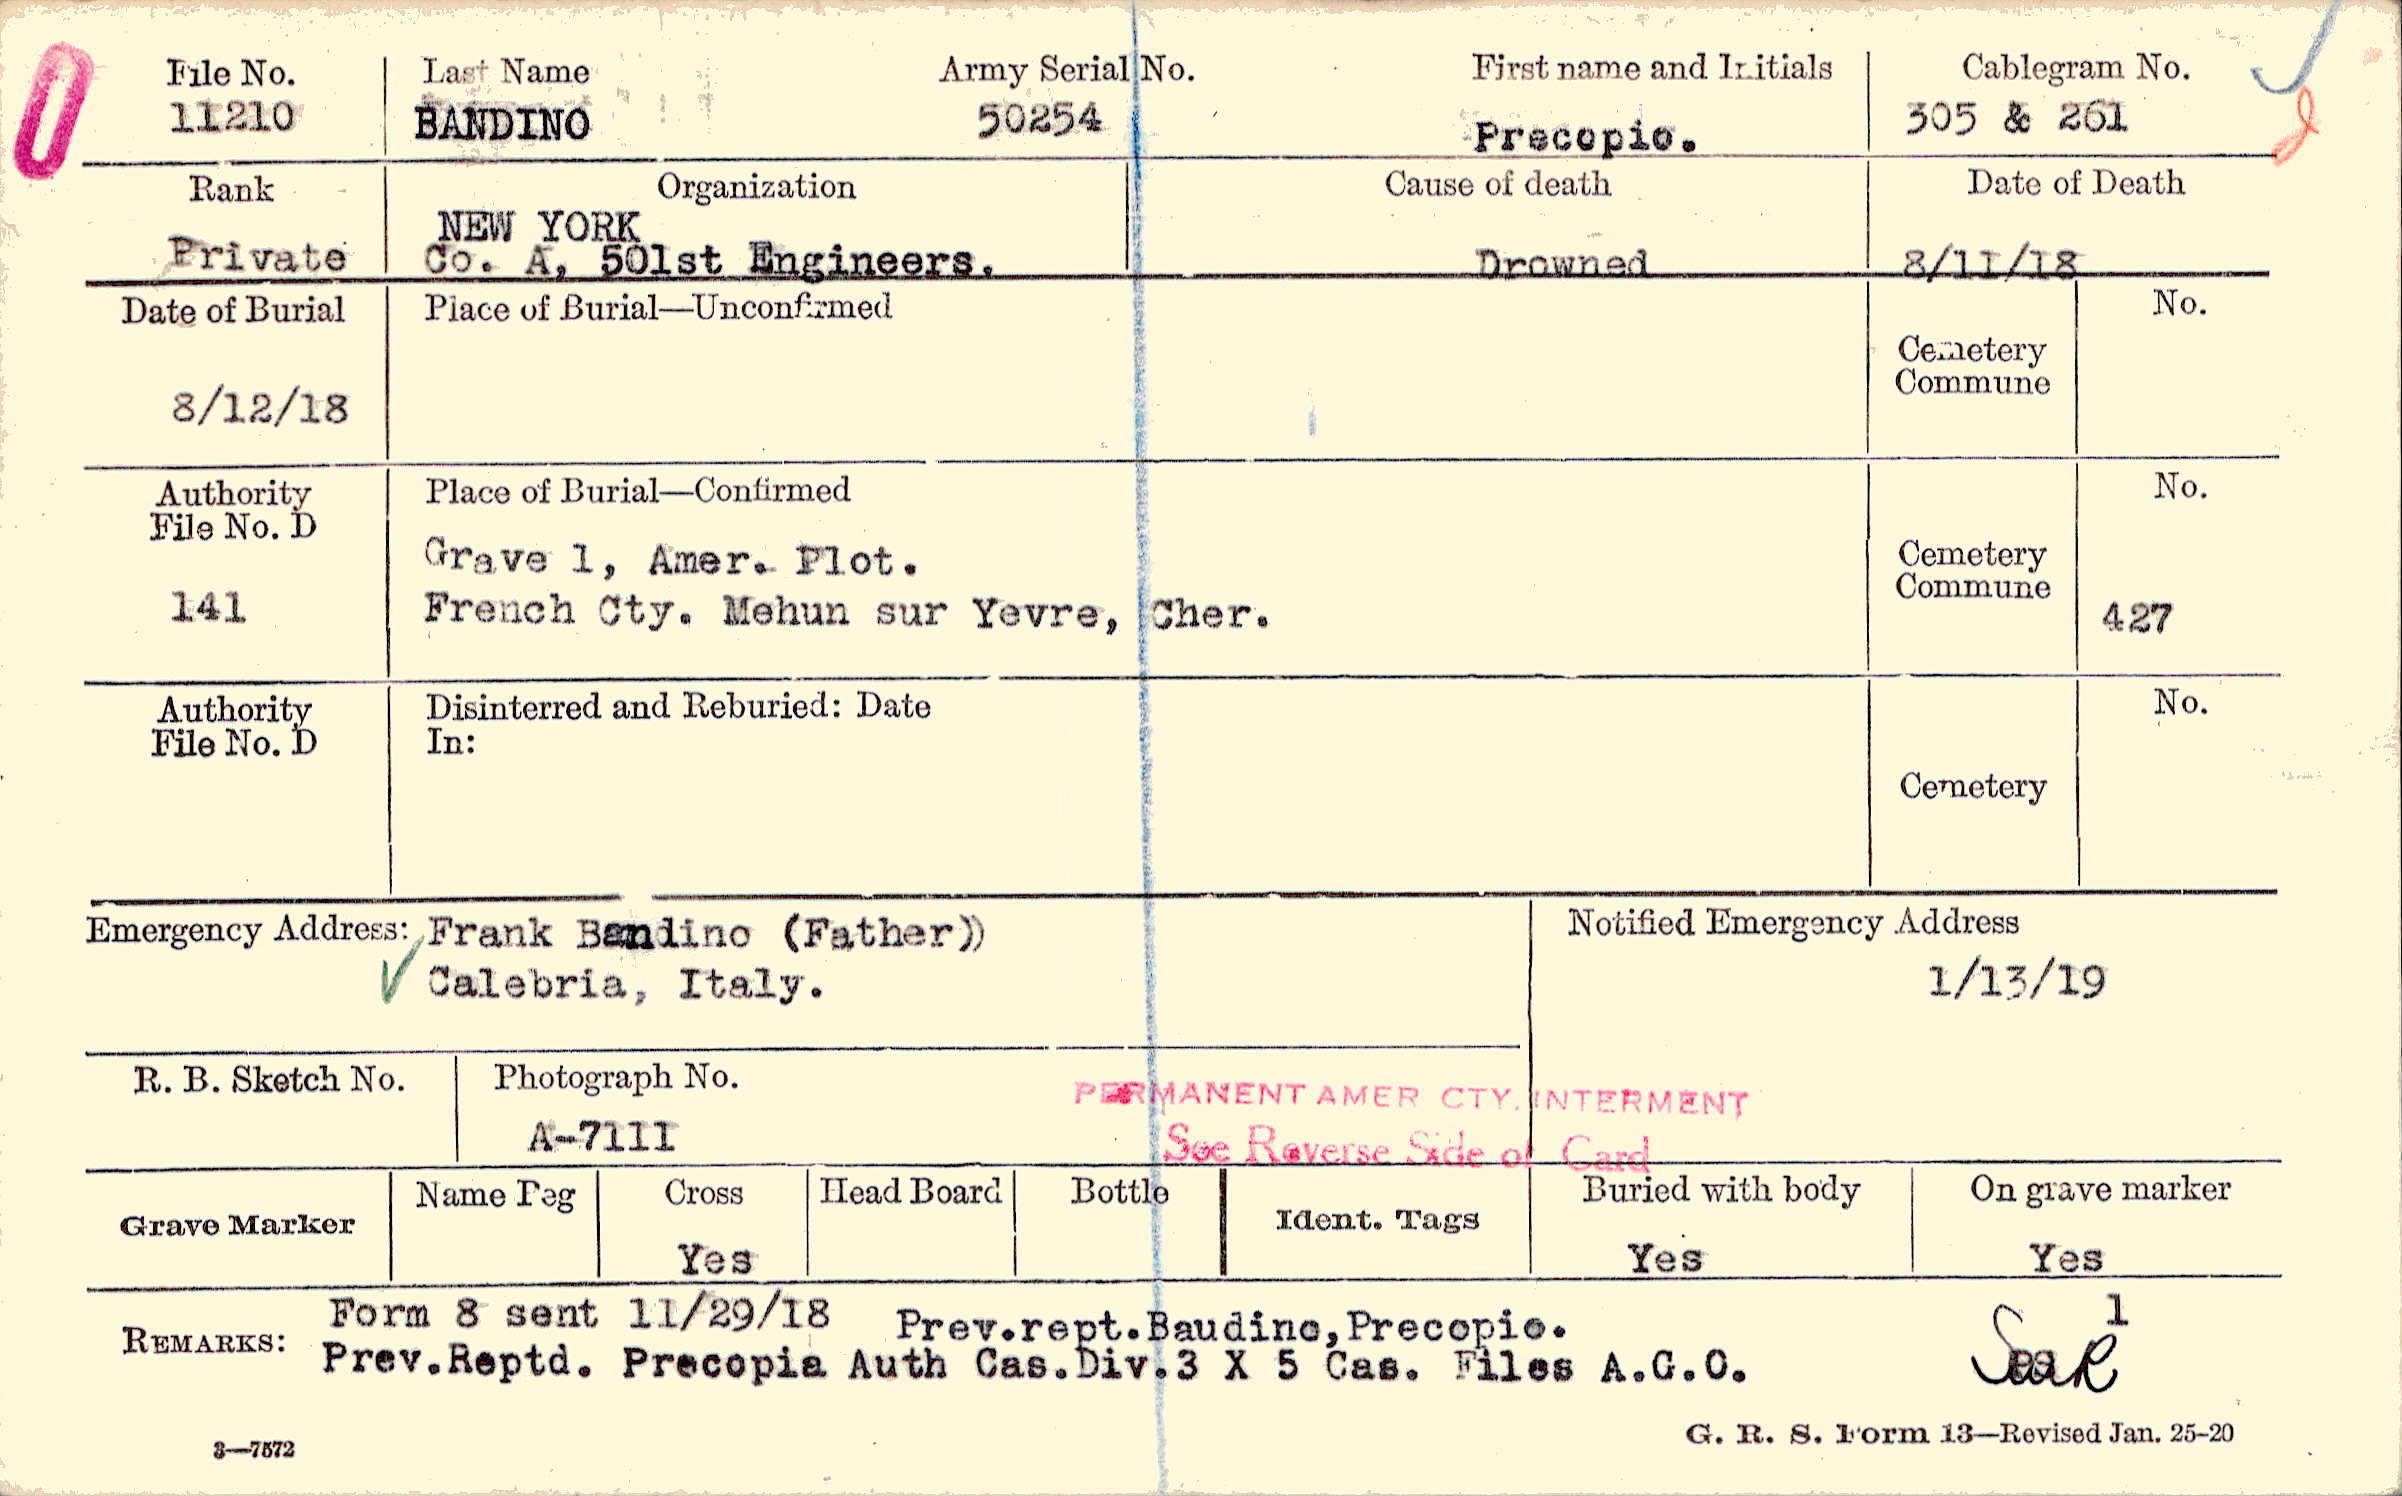 File No. Last Name Army Serial No. First name and Initials Cablegram No.
11210 BANDINO 50254 Precopio. 305 & 261
Rank Organization Cause of death Date of Death
NEW YORK
Private Co. A, 501st Engineers. Drowned 8/11/18
Date of Burial Place of Burial—Unconfirmed No.
Cemetery
Commune
8/12/18
Authority Place of Burial—Confirmed No.
File No. D
Grave 1, Amer. Plot. Cemetery
Commune
141 French Cty. Mehun sur Yevre, Cher. 427
Authority Disinterred and Reburied: Date No.
File No. D In:
Cemetery
Emergency Address: Frank Bandino (Father)) Notified Emergency Address
Calebria, Italy. 1/13/19
R. B. Sketch No. Photograph No.
PERMANENT AMER CTY. INTERMENT
A-7111 See Reverse Side of Card
Name Peg Cross Head Board Bottle Buried with body On grave marker
Grave Marker Ident. Tags
Yes Yes Yes
Form 8 sent 11/29/18 Prev.rept.Baudino,Precopio. 1
REMARKS:
Prev.Reptd. Precopia Auth Cas.Div.3 X 5 Cas. Files A.G.O.
3—7572 G. R. S. Form 13—Revised Jan. 25-20